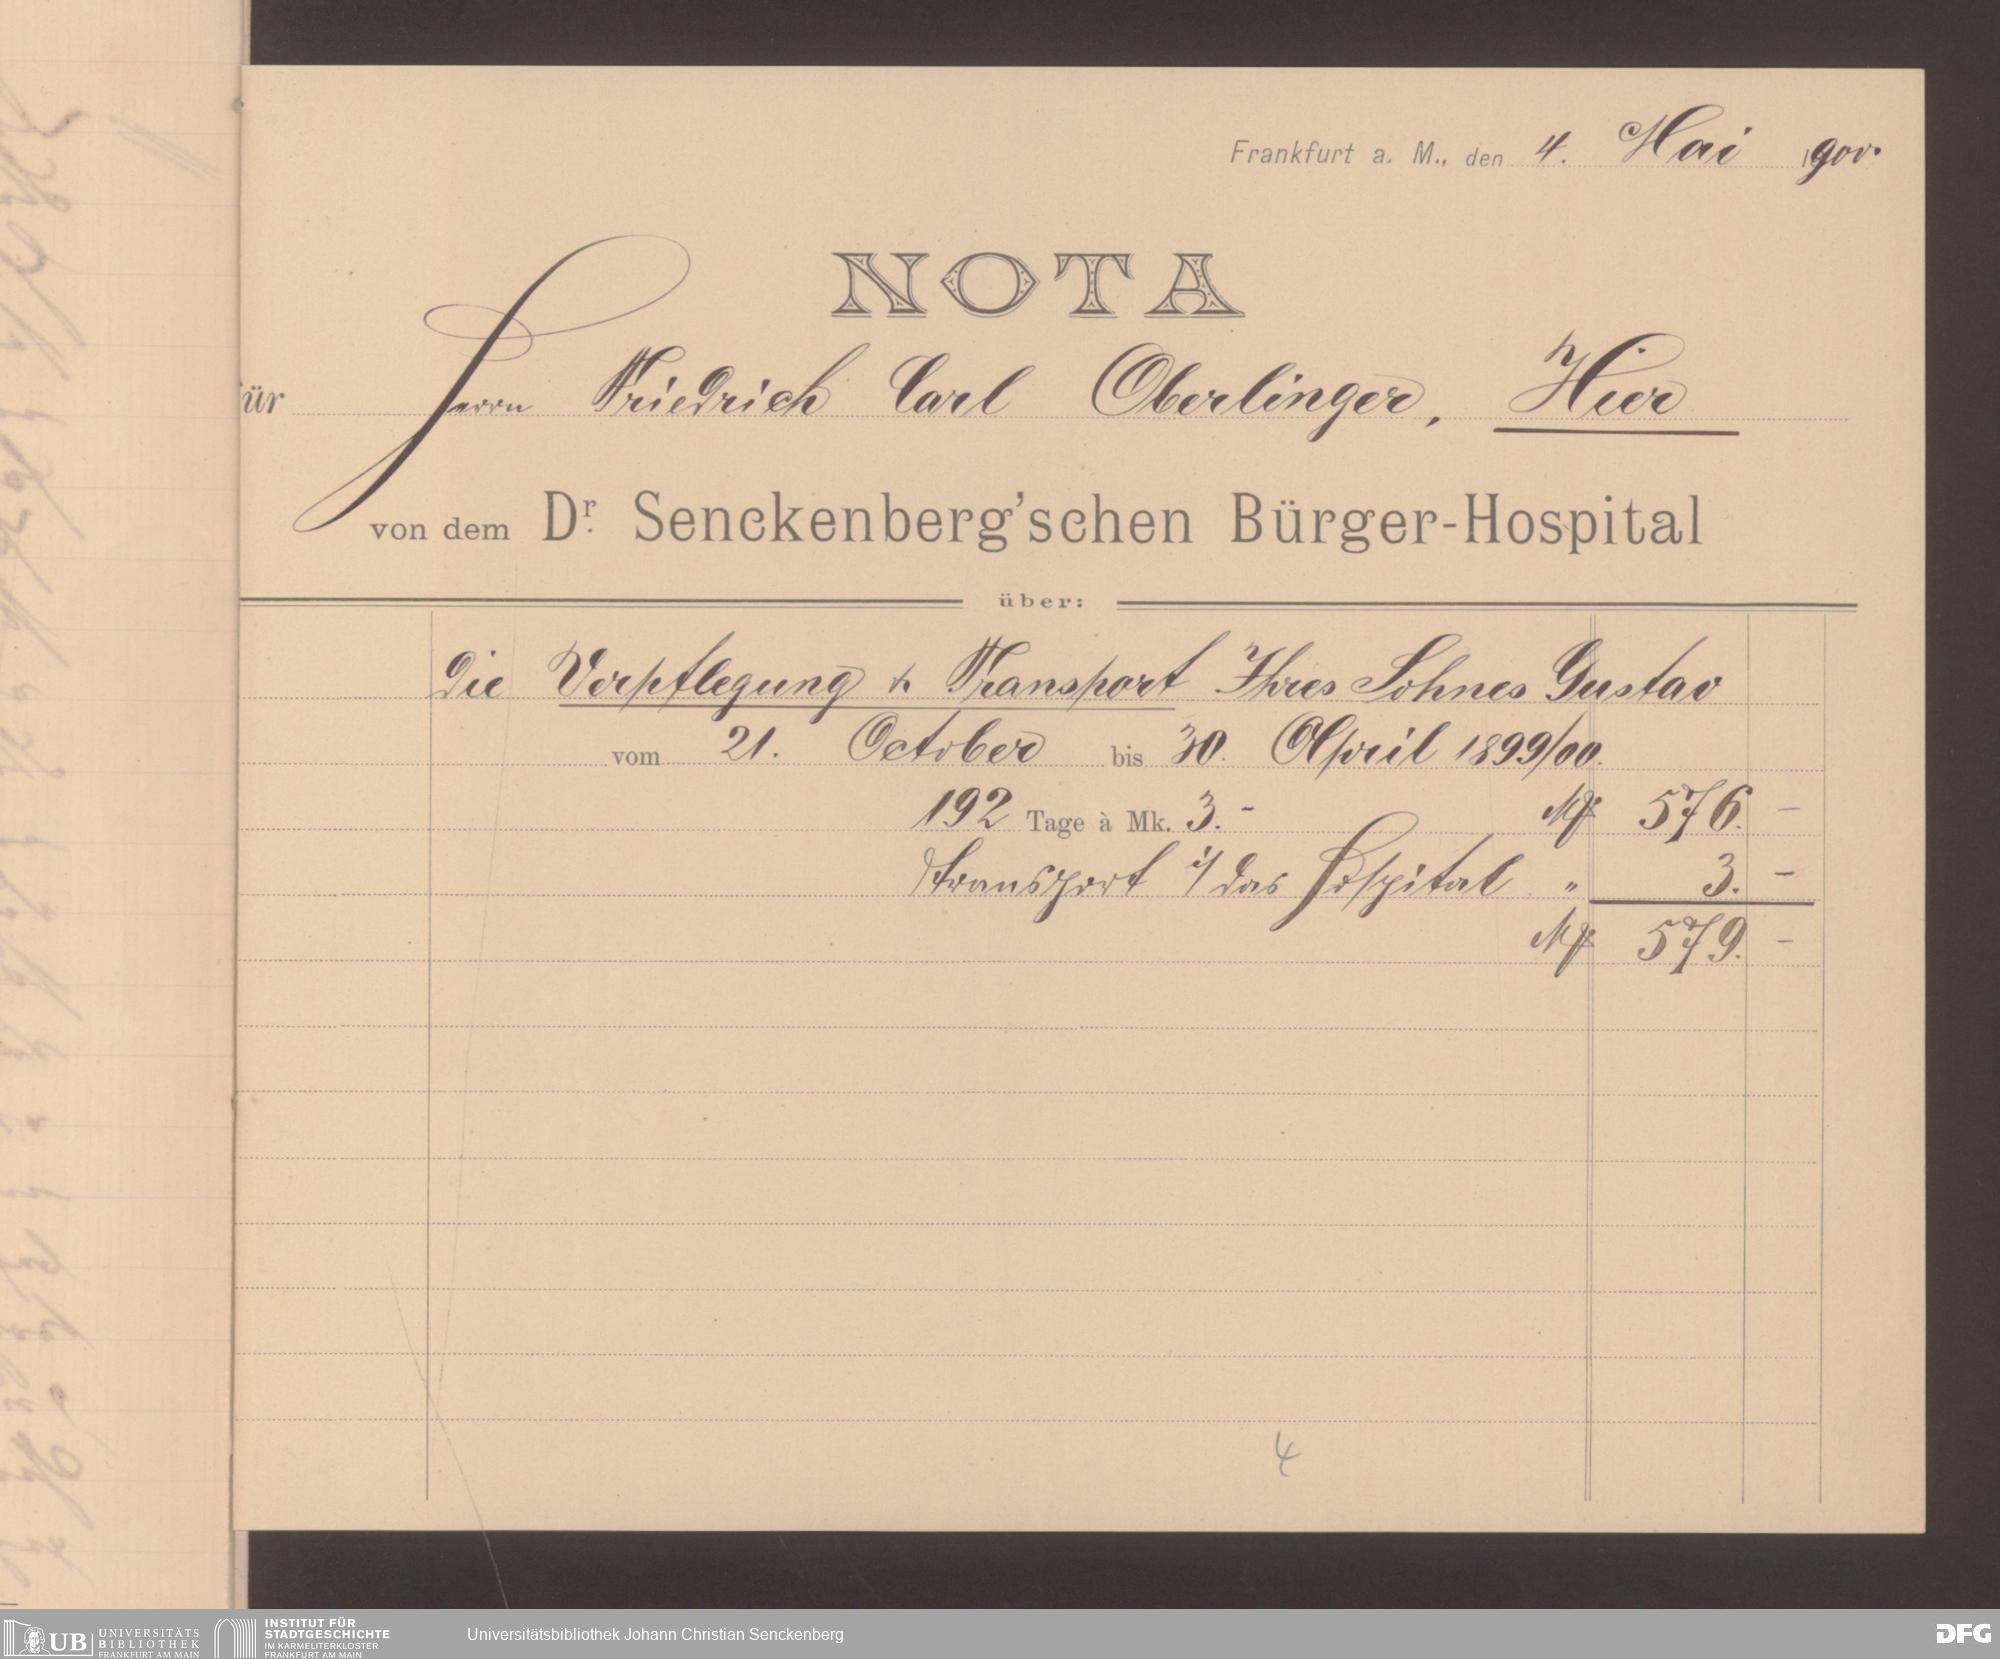 Frankfurt a. M., den 4. Mai 1900.
NOTA
für Herrn Friedrich Carl Oberlinger, Hier
von dem Dr. Senckenberg'schen Bürger-Hospital
über:
die Verpflegung & Transport Ihres Sohnes Gustav
vom 21. October bis 30. April 1899/00.
192 Tage à Mk. 3.- M 576. -
Transport i/ das Hospital " 3. -
M 579. -
4
UB UNIVERSITÄTS
BIBLIOTHEK
FRANKFURT AM MAIN
INSTITUT FÜR
STADTGESCHICHTE
IM KARMELITERKLOSTER
FRANKFURT AM MAIN
Universitätsbibliothek Johann Christian Senckenberg
DFG